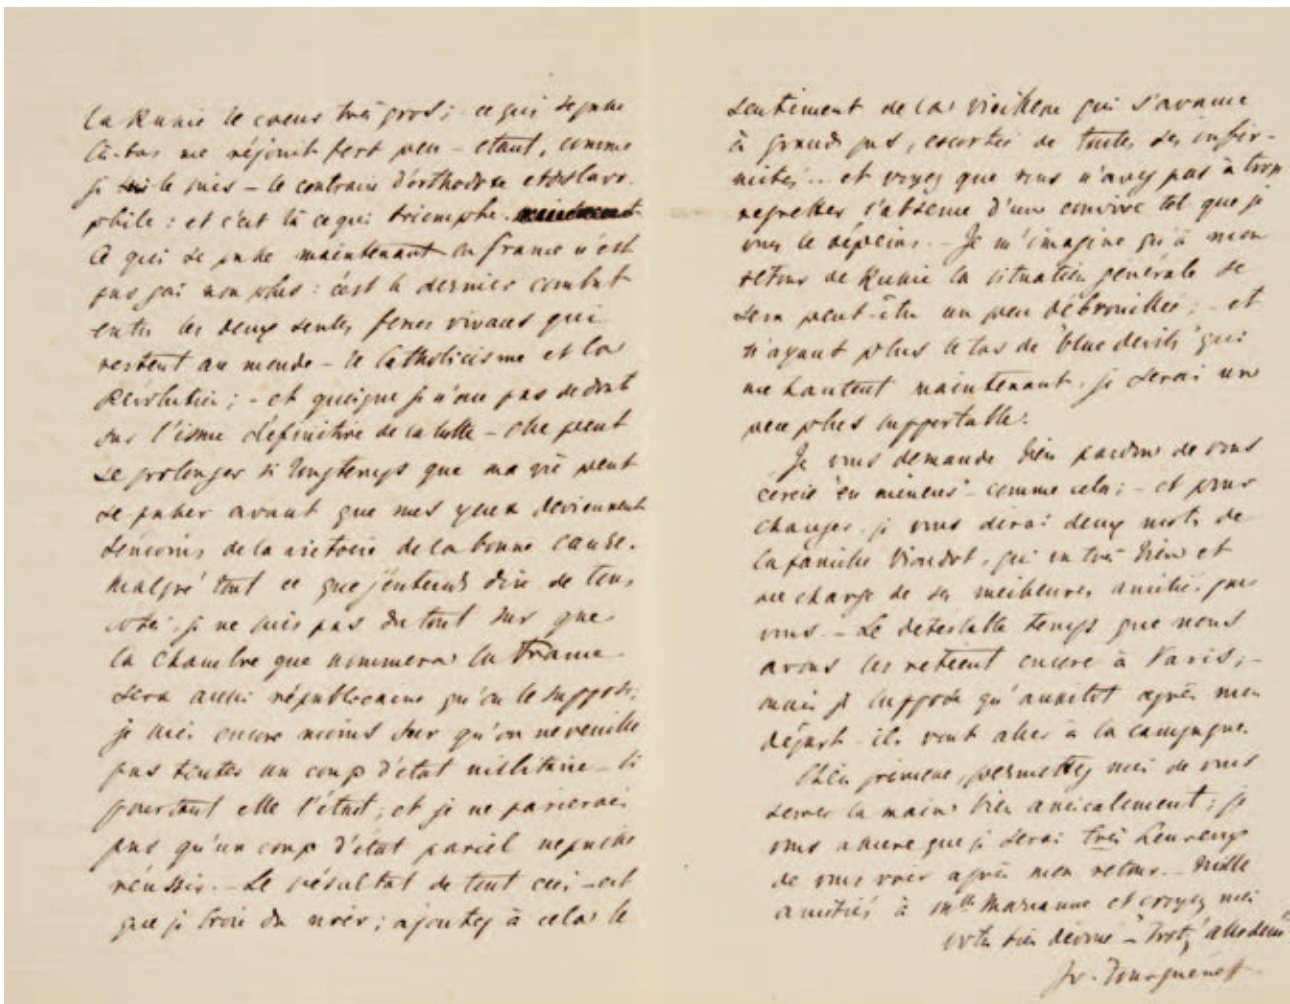 la Russie le coeur très gros; ce qui se passe
là-bas me réjouit fort peu – étant, comme
je le suis – le contraire d'orthodoxe et de slavo-
phile: et c'est là ce qui triomphe.
Ce qui se passe maintenant en France n'est
pas gai non plus: c'est le dernier combat
entre les deux seules forces vivaces qui
restent au monde – le Catholicisme et la
Révolution; – et quoique je n'aie pas de doute
sur l'issue définitive de la lutte – elle peut
se prolonger si longtemps que ma vie peut
se passer avant que mes yeux deviennent
témoins de la victoire de la bonne cause.
Malgré tout ce que j'entends dire de tous
côtés, je ne suis pas du tout sûr que
la Chambre que nommera la France
sera aussi républicaine qu'on le suppose;
je suis encore moins sûr qu'on ne veuille
pas tenter un coup d'état militaire – si
pourtant elle l'était; et je ne parierais
pas qu'un coup d'état pareil ne puisse
réussir. – Le résultat de tout ceci – est
que je broie du noir; ajoutez à cela le
sentiment de la vieillesse qui s'avance
à grands pas, escortée de toutes ses infir-
mités... et voyez que vous n'avez pas à trop
regretter l'absence d'un convive tel que je
vous le dépeins. – Je m'imagine qu'à mon
retour de Russie la situation générale se
sera peut-être un peu débrouillée; – et
n'ayant plus le tas de "blue devils" qui
me hantent maintenant, je serai un
peu plus supportable.
Je vous demande bien pardon de vous
écrire "en mineur" comme cela; – et pour
changer, je vous dirai deux mots de
la famille Viardot, qui va très bien et
me charge de ses meilleures amitiés pour
vous. – Le détestable temps que nous
avons les retient encore à Paris; –
mais je suppose qu'aussitôt après mon
départ ils vont aller à la campagne.
Chère princesse, permettez moi de vous
serrer la main bien amicalement; je
vous assure que je serai très heureux
de vous voir après mon retour. – Mille
amitiés à Mlle Marianne et croyez moi
votre bien dévoué
Iv. Tourguéneff